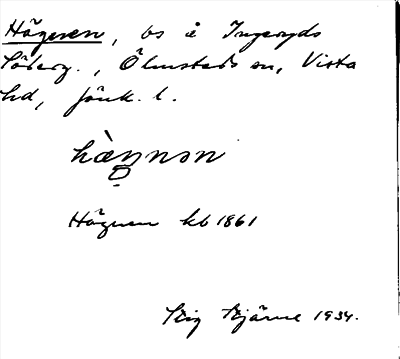 Högeven, bs å Ingeryds
Söberg., Ölmstads sn, Vista
hd, Jönk. l.
hæ̀n̥nən
Högnen kb 1861
Stig Bjärne 1934.